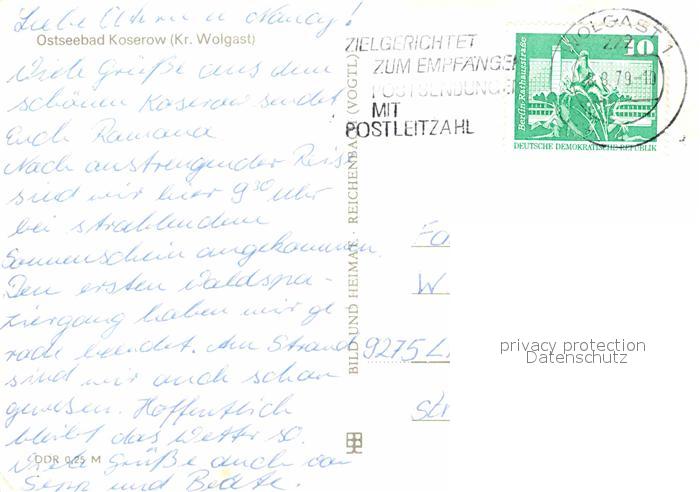 Liebe Uhren u Nancy!
Ostseebad Koserow (Kr. Wolgast)
Viele Grüße aus dem
schönen Koserow sendet
Euch Ramona
Nach anstrengender Reise
sind wir hier 9³⁰ Uhr
bei strahlendem
Sonnenschein angekommen.
Den ersten Waldspa-
ziergang haben wir ge
rade beendet. Am Strand
sind wir auch schon
gewesen. Hoffentlich
bleibt das Wetter so.
DDR 0,25 M
Viele Grüße auch von
Sepp und Beate.
BILD UND HEIMAT · REICHENBACH (VOGTL)
ZIELGERICHTET
ZUM EMPFÄNGER
POSTSENDUNGEN
MIT
POSTLEITZAHL
WOLGAST 1
222
8.79-10
10
Berlin·Rathausstraße
DEUTSCHE DEMOKRATISCHE REPUBLIK
Fa
W
9275 L
Str
privacy protection
Datenschutz